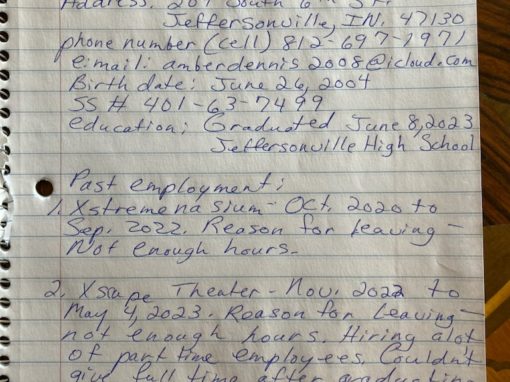 Address: 201 South 6th St.
Jeffersonville, IN. 47130
phone number (cell) 812-697-1971
e:mail: amberdennis2008@icloud.com
Birthdate: June 26, 2004
SS# 401-63-7499
education: Graduated June 8, 2023
Jeffersonville High School
Past employment:
1. Xstremenasium - Oct. 2020 to
Sep. 2022. Reason for leaving -
Not enough hours.
2. Xscape Theater - Nov. 2022 to
May 4, 2023. Reason for leaving -
not enough hours. Hiring alot
of part time employees. Couldn't
give full time after graduating